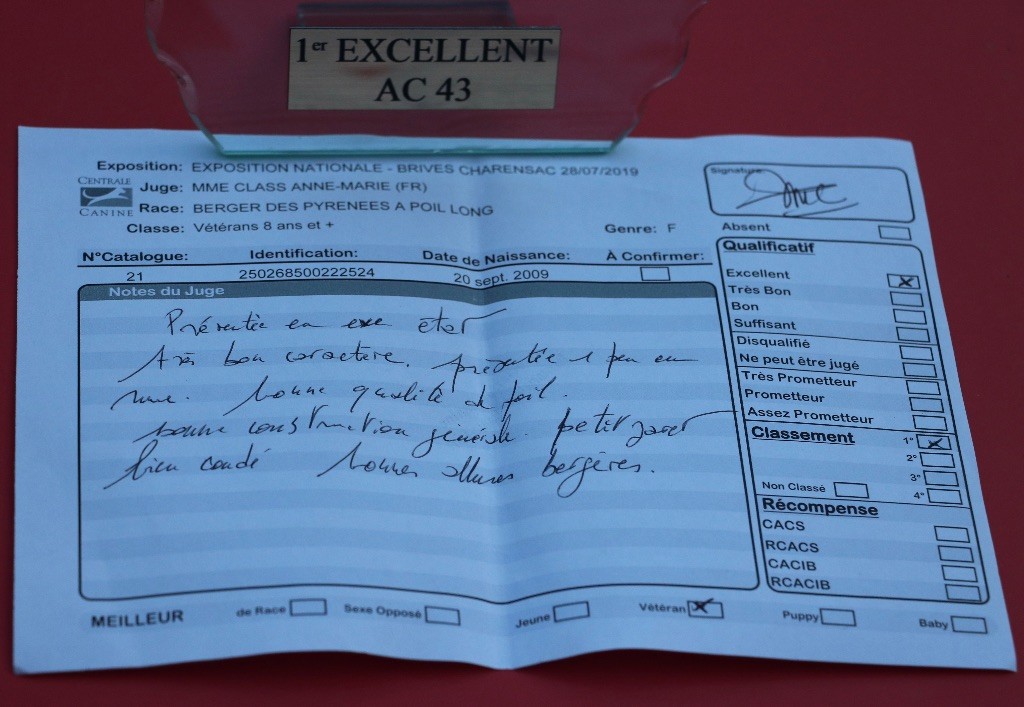 1er EXCELLENT
AC 43
Exposition: EXPOSITION NATIONALE - BRIVES CHARENSAC 28/07/2019
CENTRALE
CANINE
Juge: MME CLASS ANNE-MARIE (FR)
Race: BERGER DES PYRENEES A POIL LONG
Classe: Vétérans 8 ans et + Genre: F
Signature
Absent
N°Catalogue: Identification: Date de Naissance: À Confirmer:
21 250268500222524 20 sept. 2009
Notes du Juge
Présentée en exc état
très bon caractère. présentée 1 peu en
mue. bonne qualité de poil.
bonne construction générale. petit
bien coudé bonnes allures bergères.
Qualificatif
Excellent X
Très Bon
Bon
Suffisant
Disqualifié
Ne peut être jugé
Très Prometteur
Prometteur
Assez Prometteur
Classement 1° X
2°
3°
Non Classé 4°
Récompense
CACS
RCACS
CACIB
RCACIB
MEILLEUR de Race Sexe Opposé Jeune Vétéran X Puppy Baby